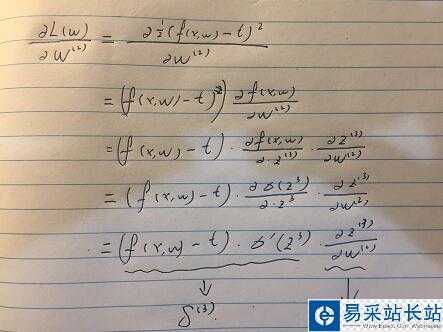 ∂L(w)/∂W⁽²⁾ = ∂ ½ (f(x,w) − t)² / ∂W⁽²⁾
= (f(x,w) − t) ∂f(x,w)/∂w⁽²⁾
= (f(x,w) − t) · ∂f(x,w)/∂·z⁽³⁾ · ∂z⁽³⁾/∂w⁽²⁾
= (f(x,w) − t) · ∂σ(z³)/∂·z³ · ∂z⁽³⁾/∂w⁽²⁾
= (f(x,w) − t) · σ'(z³) · ∂z⁽³⁾/∂w⁽²⁾
↓ ↓
δ⁽³⁾
易采站长站
Www.Easck.Com